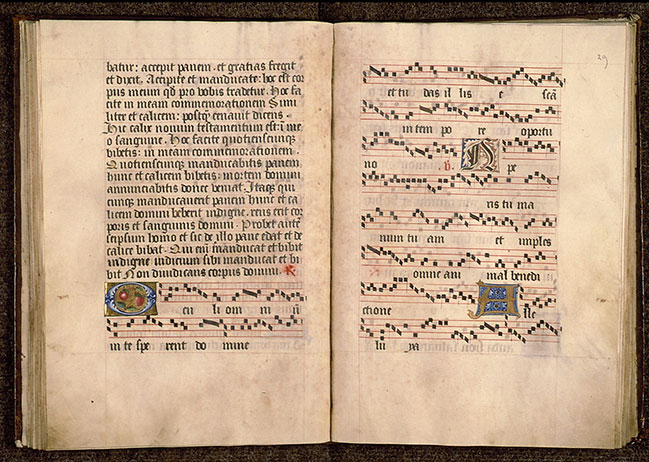 batur: accepit panem. et gratias fregit
et dixit. Accipite et manducate: hoc est cor
pus meum qd pro vobis tradetur. Hoc fa
cite in meam commemorationem Simi
liter et calicem: postq̃ cenauit dicens.
Hic calix nouum testamentum est: in me
o sanguine. Hoc facite quotienscunqȝ
bibetis: in meam commemorationem.
Quotienscunqȝ manducabitis panem
hunc et calicem bibetis: mortem domini
annunciabitis donec veniat. Itaqȝ qui
cunqȝ manducauerit panem hunc et ca
licem domini biberit indigne. reus erit cor
poris et sanguinis domini. Probet autẽ
seipsum homo et sic de illo pane edat et de
calice bibat. Qui eni manducat et bibit
indigne iudicium sibi manducat et bi
bit Non diiudicans corpus domini. R
O cu li om ni ũ
in te spe rent do mine
29
et tu das il lis e scã
in tem po re oportu
no v. A pe
ris tu ma
num tu am et imples
omne ani mal benedi
ctione A lle
lu ya